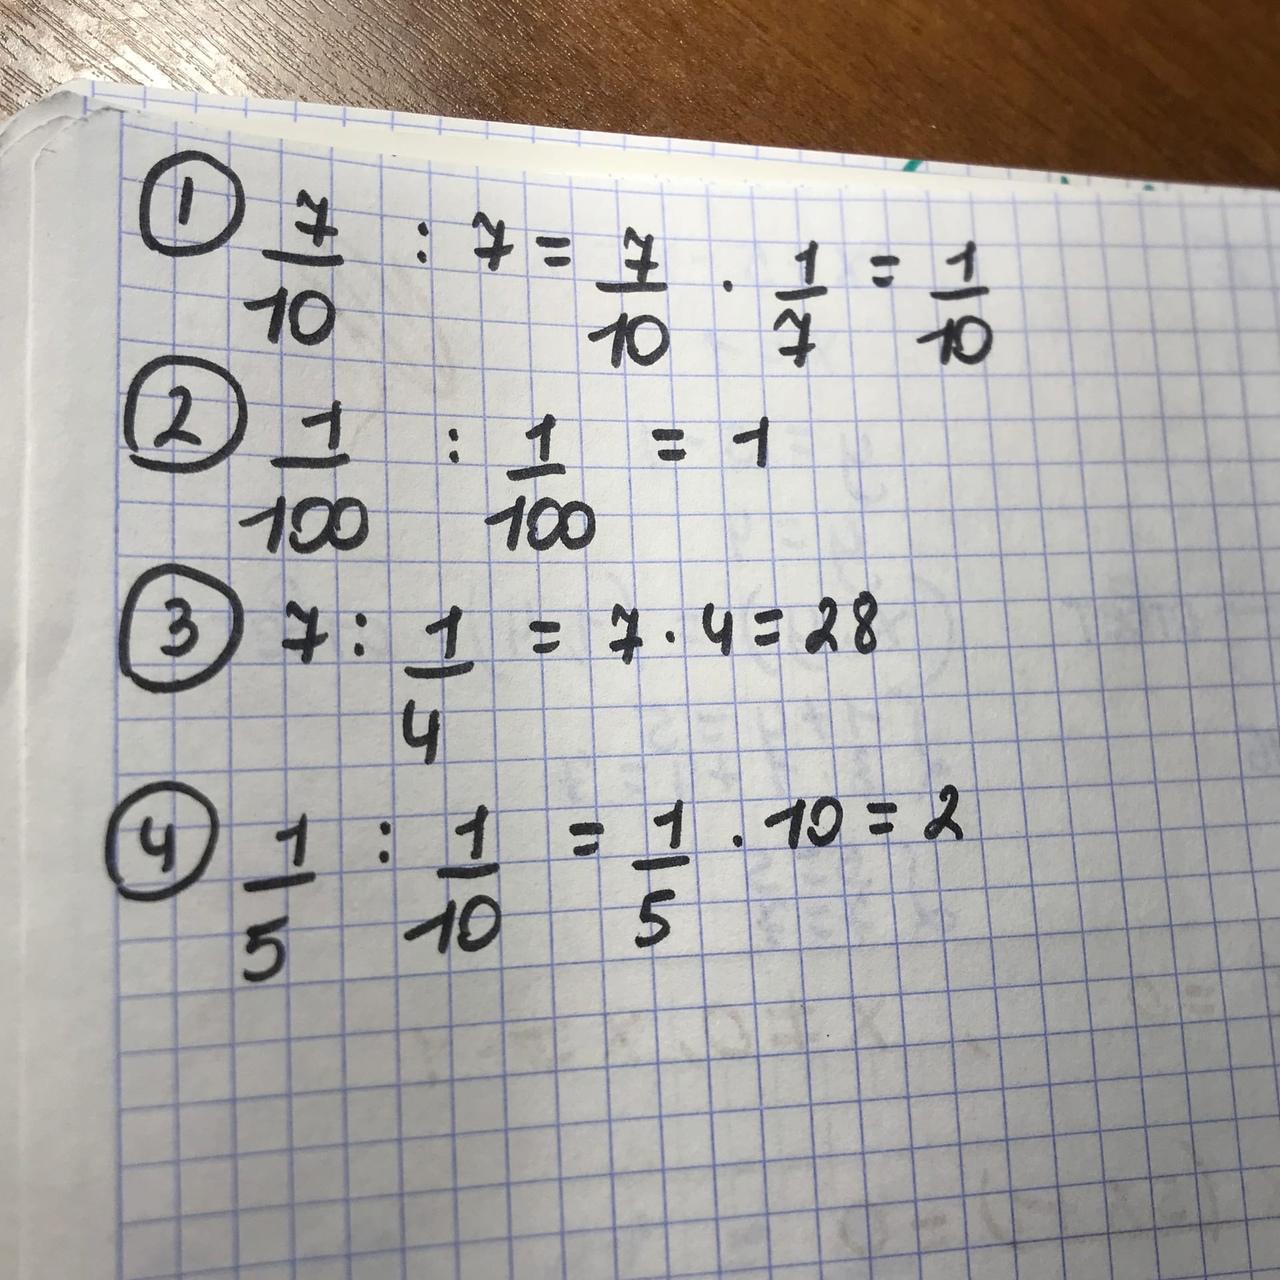 ① 7/10 : 7 = 7/10 · 1/7 = 1/10
② 1/100 : 1/100 = 1
③ 7 : 1/4 = 7 · 4 = 28
④ 1/5 : 1/10 = 1/5 · 10 = 2